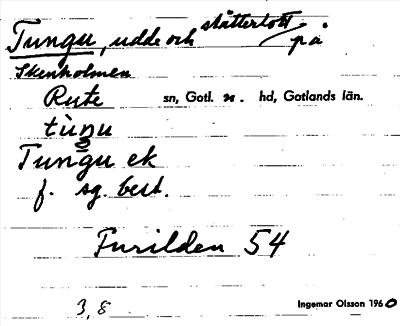 Tungu, udde och slåtterlott på
Skenholmen
Rute sn, Gotl. n. hd, Gotlands län.
Tungu ek
f. sg. best.
Furilden 54
3, 8
Ingemar Olsson 1960